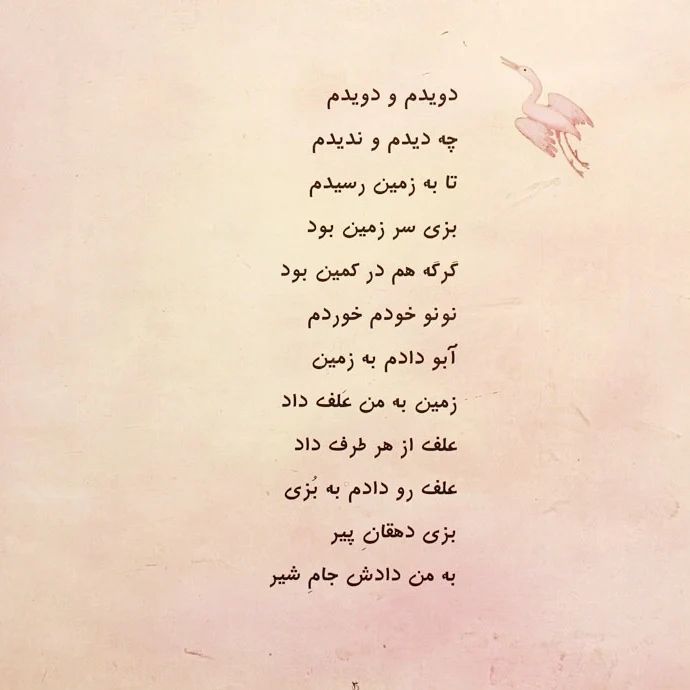 دویدم و دویدم
چه دیدم و ندیدم
تا به زمین رسیدم
بزی سر زمین بود
گرگه هم در کمین بود
نونو خودم خوردم
آبو دادم به زمین
زمین به من عَلف داد
علف از هر طرف داد
علف رو دادم به بُزی
بزی دهقانِ پیر
به من دادش جامِ شیر